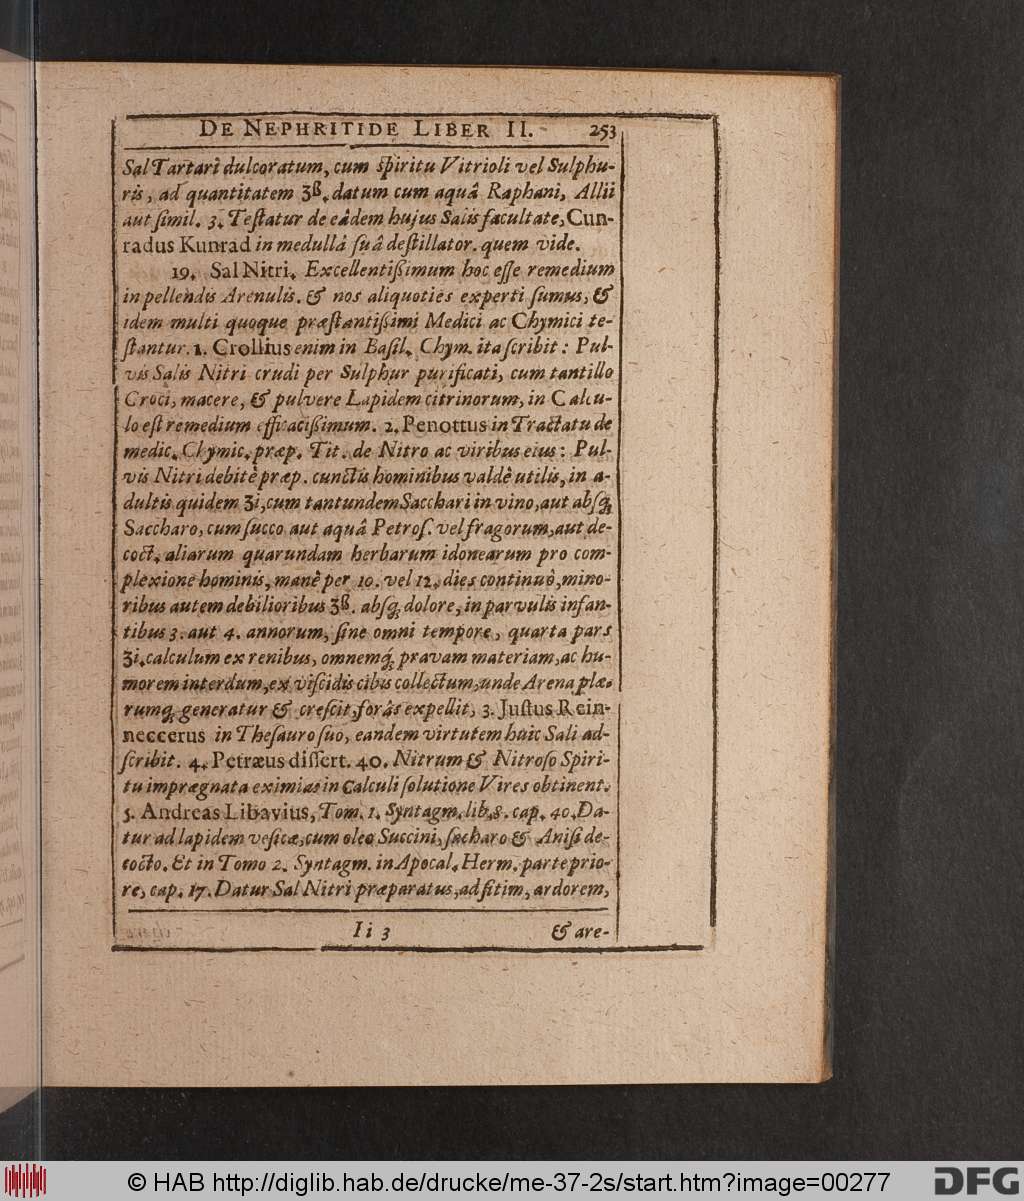 DE NEPHRITIDE LIBER II. 253
Sal Tartari dulcoratum, cum spiritu Vitrioli vel Sulphu-
ris, ad quantitatem ʒß. datum cum aquâ Raphani, Allii
aut simil. 3. Testatur de eâdem hujus Salis facultate, Cun-
radus Kunrad in medullâ suâ destillator. quem vide.
19. Sal Nitri. Excellentißimum hoc esse remedium
in pellendis Arenulis. & nos aliquoties experti sumus, &
idem multi quoque præstantißimi Medici ac Chymici te-
stantur. 1. Crollius enim in Basil. Chym. ita scribit: Pul-
vis Salis Nitri crudi per Sulphur purificati, cum tantillo
Croci, macere, & pulvere Lapidem citrinorum, in Calcu-
lo est remedium efficacißimum. 2. Penottus in Tractatu de
medic. Chymic. præp. Tit. de Nitro ac viribus eius: Pul-
vis Nitri debitè præp. cunctis hominibus valdè utilis, in a-
dultis quidem ʒi, cum tantundem Sacchari in vino, aut absq;
Saccharo, cum succo aut aquâ Petros. vel fragorum, aut de-
coct. aliarum quarundam herbarum idonearum pro com-
plexione hominis, manè per 10. vel 12. dies continuò, mino-
ribus autem debilioribus ʒß. absq; dolore, in parvulis infan-
tibus 3. aut 4. annorum, sine omni tempore, quarta pars
ʒi. calculum ex renibus, omnemq; pravam materiam, ac hu-
morem interdum, ex viscidis cibis collectum, unde Arena plæ-
rumq; generatur & crescit, foràs expellit, 3. Justus Rein-
neccerus in Thesauro suo, eandem virtutem huic Sali ad-
scribit. 4. Petræus dissert. 40. Nitrum & Nitroso Spiri-
tu imprægnata eximias in Calculi solutione Vires obtinent.
5. Andreas Libavius, Tom. 1. Syntagm. lib. 8. cap. 40. Da-
tur ad lapidem vesicæ, cum oleo Succini, sacharo & Anisi de-
cocto. Et in Tomo 2. Syntagm. in Apocal. Herm. parte prio-
re, cap. 17. Datur Sal Nitri præparatus, ad sitim, ardorem,
I i 3 & are-
© HAB http://diglib.hab.de/drucke/me-37-2s/start.htm?image=00277 DFG